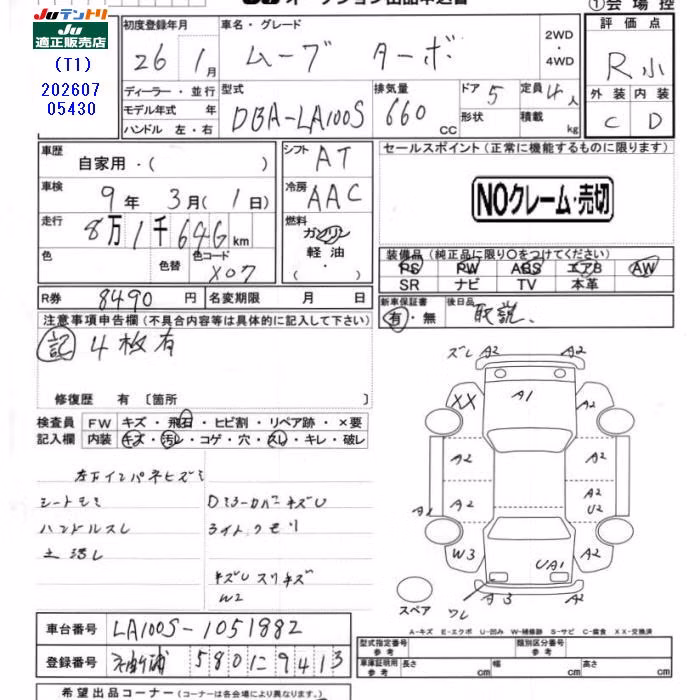 Juテントリ
Ju
適正販売店
(T1)
202607
05430
①会場控
初度登録年月
26 1月
車名・グレード
ムーブ ターボ
2WD
・
4WD
評価点
R小
外装 内装
C D
ディーラー・並行
モデル年式 年
ハンドル 左・右
型式
DBA-LA100S
排気量
660 cc
ドア 5
形状
定員 4人
積載 kg
車歴
自家用・( )
シフト AT
車検 9年 3月(1日)
冷房 AAC
走行 8万1千646km
燃料
ガソリン
軽油
( ・ )
色
色替
色コード
X07
R券 8490円
名変期限 月 日
セールスポイント(正常に機能するものに限ります)
NOクレーム・売切
装備品(純正品に限り○をつけてください)
PS PW ABS エアB AW
SR ナビ TV 本革
新車保証書
有・無
後日品
取説.
注意事項申告欄(不具合内容等は具体的に記入して下さい)
記 4枚有
修復歴 有 〔箇所 〕
検査員
記入欄
FW キズ・飛石・ヒビ割・リペア跡・×要
内装 キズ・汚レ・コゲ・穴・スレ・キレ・破レ
左下インパネキズミ
シートモミ
ハンドルスレ
土汚レ
Dミラーカバーキズ U
ライトクモリ
キズU スリキズ
W2
ズレ A2 A2
XX A1 A2
A2 A2
A2 A2 A2
U2
W3 UA1 A2
A3 A2
ワレ
スペア
A-キズ E-エクボ U-凹み W-補修跡 S-サビ C-腐食 XX-交換済
車台番号 LA100S-1051882
登録番号 袖ケ浦 580 に 9413
型式指定番号
参考
類別区分番号
参考
車庫証明用
参考
長さ cm 幅 cm 高さ cm
希望出品コーナー(コーナーは各会場により異なります。)